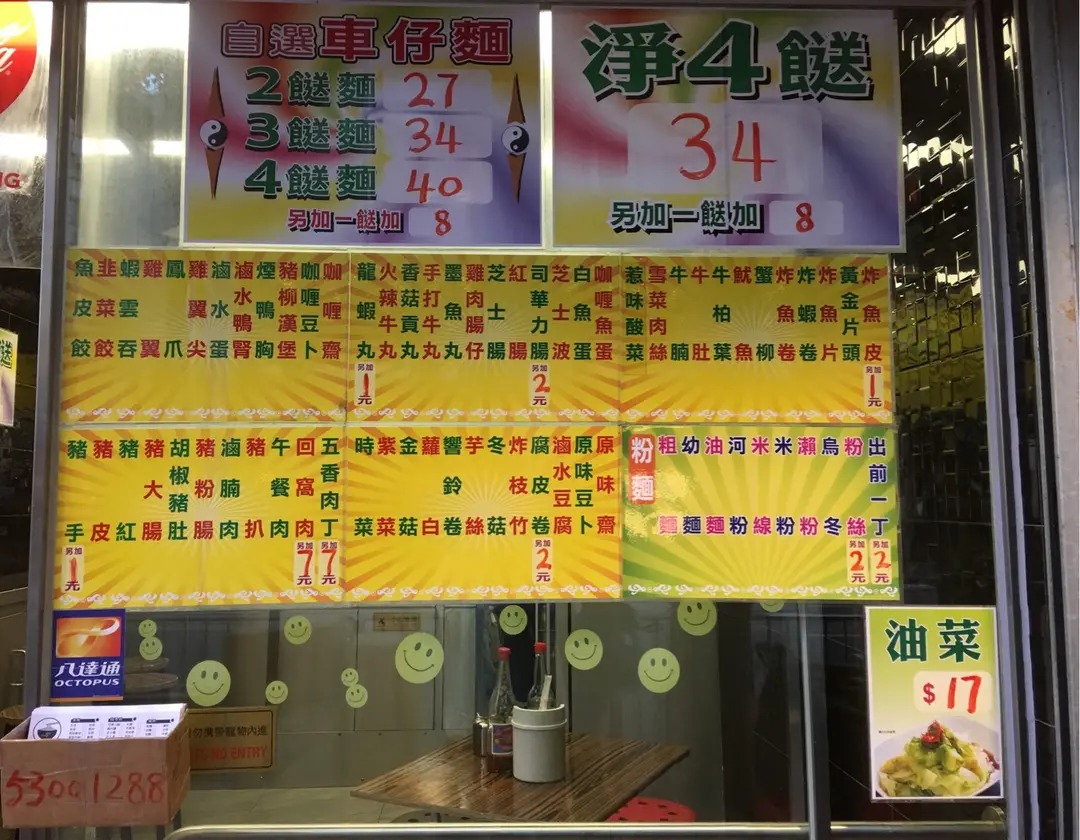 自選車仔麵
2餸麵 27
3餸麵 34
4餸麵 40
另加一餸加 8
淨4餸
34
另加一餸加 8
咖喱齋
咖喱豆卜
豬柳漢堡
煙鴨胸
滷水鴨腎
滷水蛋
雞翼尖
鳳爪
雞翼
蝦雲吞
韭菜餃
魚皮餃
咖喱魚蛋
白魚蛋
芝士波
司華力腸 另加2元
紅腸
芝士腸
雞肉腸仔
墨魚丸
手打牛丸
香菇貢丸
火辣牛丸
龍蝦丸 另加1元
炸魚皮 另加1元
黃金片頭
炸魚片
炸蝦卷
炸魚卷
蟹柳
魷魚
牛柏葉
牛肚
牛腩
雪菜肉絲
惹味酸菜
五香肉丁 另加7元
回窩肉 另加7元
午餐肉
豬扒
滷腩肉
豬粉腸
胡椒豬肚
豬大腸
豬紅
豬皮
豬手 另加1元
原味齋
原味豆卜
滷水豆腐
腐皮卷 另加2元
炸枝竹
冬菇
芋絲
響鈴卷
蘿白
金菇
紫菜
時菜
粉麵
出前一丁 另加2元
粉絲 另加2元
烏冬
瀨粉
米粉
米線
河粉
油麵
幼麵
粗麵
八達通
OCTOPUS
油菜
$17
NO ENTRY